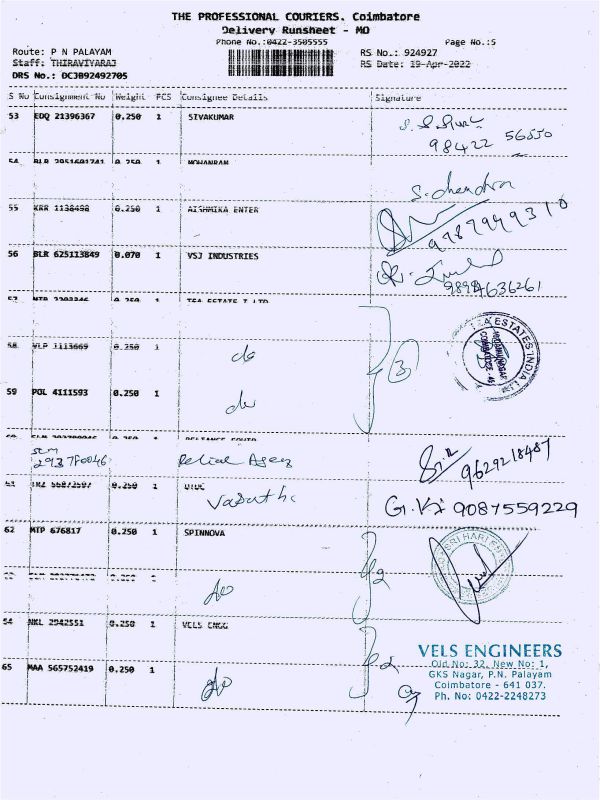 THE PROFESSIONAL COURIERS. Coimbatore
Delivery Runsheet - MO
Phone No.:0422-3505555 Page No.:5
Route: P N PALAYAM RS No.: 924927
Staff: THIRAVIYARAJ RS Date: 19-Apr-2022
DRS No.: DCJB92492705
S No Consignment No Weight PCS Consignee Details Signature
53 EDQ 21396367 0.250 1 SIVAKUMAR
98422 56550
54 BLR 2951601741 0.250 1 MOHANRAM
S. chendra
55 KRR 1138498 0.250 1 AISHMIKA ENTER
9787949310
56 BLR 625113849 0.070 1 VSJ INDUSTRIES
9894636261
57 MTP 0.250 1 TEA ESTATE I LTD
TEA ESTATES INDIA
COIMBATORE
58 VLP 1113669 0.250 1
do
3
59 POL 4111593 0.250 1
do
60 0.250 1 RELIANCE
9629218487
61 0.250 1
Vasantha
9087559229
62 MTP 676817 0.250 1 SPINNOVA
SRI HARI
0.250 1
do
2
64 NKL 2942551 0.250 1 VELS ENGG
VELS ENGINEERS
Old No: 32, New No: 1,
65 MAA 565752419 0.250 1
do
2
GKS Nagar, P.N. Palayam
Coimbatore - 641 037.
Ph. No: 0422-2248273